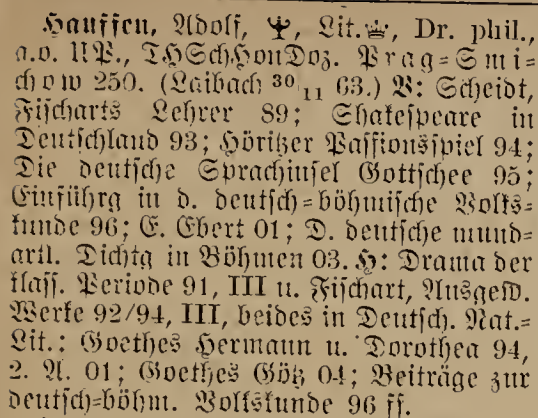 Hauffen, Adolf, Lit., Dr. phil.,
a.o. UP., THSchHonDoz. Prag=Smi=
chow 250. (Laibach 30/11 63.) V: Scheidt,
Fischarts Lehrer 89; Shakespeare in
Deutschland 93; Höritzer Passionsspiel 94;
Die deutsche Sprachinsel Gottschee 95;
Einführg in d. deutsch=böhmische Volks=
kunde 96; E. Ebert 01; D. deutsche mund=
artl. Dichtg in Böhmen 03. H: Drama der
klass. Periode 91, III u. Fischart, Ausgew.
Werke 92/94, III, beides in Deutsch. Nat.=
Lit.: Goethes Hermann u. Dorothea 94,
2. A. 01; Goethes Götz 04; Beiträge zur
deutsch=böhm. Volkskunde 96 ff.